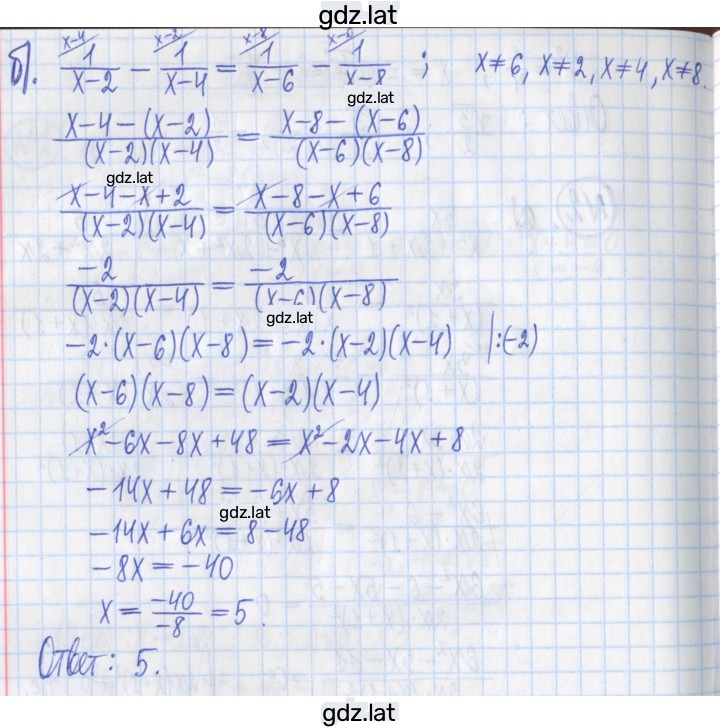 gdz.lat
x-4 x-2 x-8 x-6
б). 1/(x-2) - 1/(x-4) = 1/(x-6) - 1/(x-8) ; x≠6, x≠2, x≠4, x≠8.
gdz.lat
(x-4-(x-2))/((x-2)(x-4)) = (x-8-(x-6))/((x-6)(x-8))
gdz.lat
(x-4-x+2)/((x-2)(x-4)) = (x-8-x+6)/((x-6)(x-8))
-2/((x-2)(x-4)) = -2/((x-6)(x-8))
gdz.lat
-2·(x-6)(x-8)=-2·(x-2)(x-4) |:(-2)
(x-6)(x-8)=(x-2)(x-4)
x²-6x-8x+48=x²-2x-4x+8
-14x+48=-6x+8
gdz.lat
-14x+6x=8-48
-8x=-40
x=-40/-8=5.
Ответ: 5.
gdz.lat